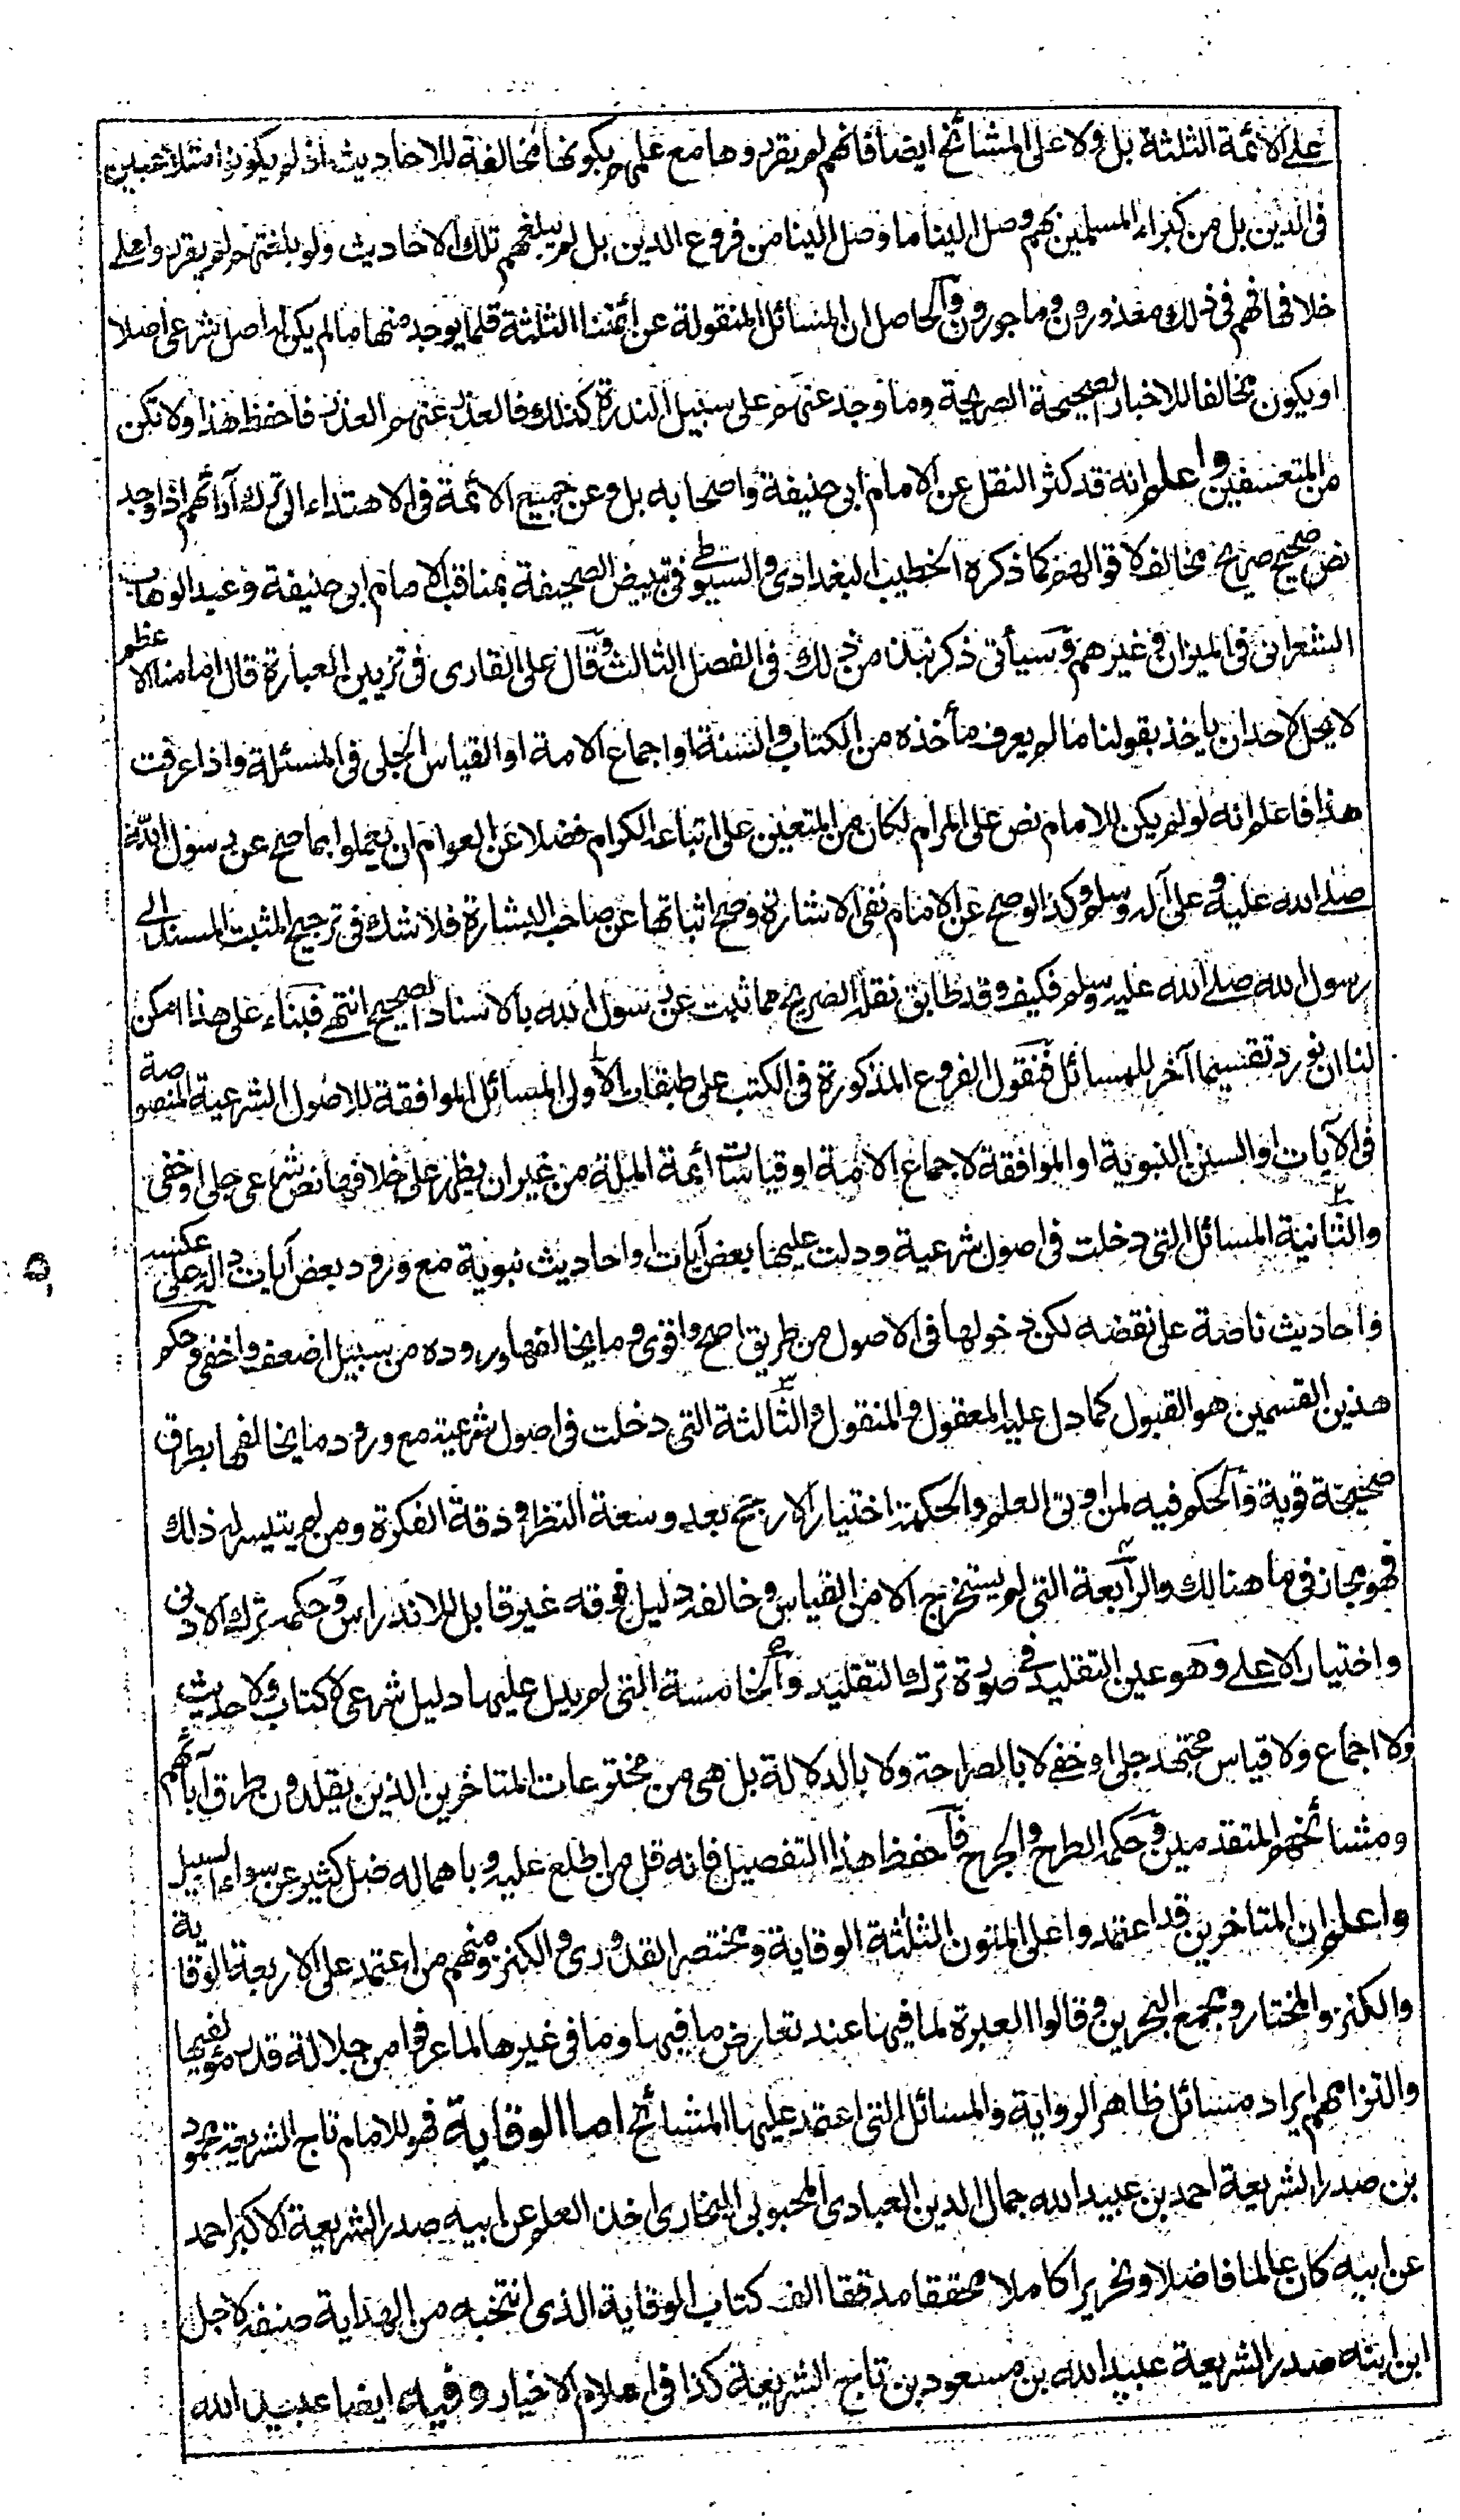 على الائمة الثلثة بل ولا على المشائخ ايضا فانهم لم يقرروها مع علمهم بكونها مخالفة للاحاديث اذ لم يكونوا متلاعبين
فى الدين بل من كبراء المسلمين بهم وصل الينا ما وصل الينا من فروع الدين بل لم يبلغهم تلك الاحاديث ولو بلغتهم لم يقرروا على
خلافها فهم فى ذلك معذورون وماجورون والحاصل ان المسائل المنقولة عن ائمتنا الثلثة قلما يوجد منها ما لم يكن له اصل شرعى اصلا
او يكون مخالفا للاخبار الصحيحة الصريحة وما وجد عنهم على سبيل الندرة كذلك فالعذر عنهم العذر فاحفظ هذا ولا تكن
من المتعسفين واعلم انه قد كثر النقل عن الامام ابى حنيفة واصحابه بل وعن جميع الائمة فى الاهتداء الى ترك آرائهم اذا وجد
نص صحيح صريح مخالف لاقوالهم كما ذكره الخطيب البغدادى والسيوطى فى تبييض الصحيفة بمناقب الامام ابى حنيفة وعبد الوهاب
الشعرانى فى الميزان وغيرهم وسيأتى ذكر نبذ من ذلك فى الفصل الثالث وقال على القارى فى تزيين العبارة قال امامنا الاعظم
لا يحل لاحد ان ياخذ بقولنا ما لم يعرف مأخذه من الكتاب والسنة او اجماع الامة او القياس الجلى فى المسئلة واذا عرفت
هذا فاعلم انه لو لم يكن للامام نص على المرام لكان من المتعين على اتباعه الكرام فضلا عن العوام ان يعملوا بما صح عن رسول الله
صلى الله عليه وعلى آله وسلم وكذا لو صح عن الامام نفى الاشارة وصح اثباتها عن صاحب البشارة فلا شك فى ترجيح المثبت المسند الى
رسول الله صلى الله عليه وسلم فكيف وقد طابق نقله الصريح مما ثبت عن رسول الله بالاسناد الصحيح انتهى فبناء على هذا امكن
لنا ان نورد تقسيما آخر للمسائل فنقول الفروع المذكورة فى الكتب على طبقات الاولى المسائل الموافقة للاصول الشرعية المنصوصة
فى الآيات او السنن النبوية او الموافقة لاجماع الامة او قياسات ائمة الملة من غير ان يظهر على خلافها نص شرعى جلى او خفى
والثانية المسائل التى دخلت فى اصول شرعية ودلت عليها بعض آيات او احاديث نبوية مع ورود بعض آيات دالة على عكسه
واحاديث ناصة على نقضه لكن دخولها فى الاصول من طريق اصح واقوى وما يخالفها وروده من سبيل اضعف واخفى وحكم
هذين القسمين هو القبول كما دل عليه المعقول والمنقول والثالثة التى دخلت فى اصول شرعية مع ورود ما يخالفها بطرق
صحيحة قوية والحكم فيه لمن اوتى العلم والحكمة اختيار الارجح بعد وسعة النظر ودقة الفكرة ومن لم يتيسر له ذلك
فهو مجاز فى ما هنالك والرابعة التى لم يستخرج الا من القياس وخالفه دليل فوقه غير قابل للاندراس وحكمه ترك الادنى
واختيار الاعلى وهو عين التقليد فى صورة ترك التقليد والخامسة التى لم يدل عليها دليل شرعى لا كتاب ولا حديث
ولا اجماع ولا قياس مجتهد جلى او خفى لا بالصراحة ولا بالدلالة بل هى من مخترعات المتاخرين الذين يقلدون طرق آبائهم
ومشائخهم المتقدمين وحكمه الطرح والجرح فاحفظ هذا التفصيل فانه قل من اطلع عليه وباهماله ضل كثير عن سواء السبيل
واعلم ان المتاخرين قد اعتمدوا على المتون الثلثة الوقاية ومختصر القدورى والكنز ومنهم من اعتمد على الاربعة الوقاية
والكنز والمختار ومجمع البحرين وقالوا العبرة لما فيها عند تعارض ما فيها وما فى غيرها لما عرفوا من جلالة قدر مؤلفيها
والتزامهم ايراد مسائل ظاهر الرواية والمسائل التى اعتمد عليها المشائخ اما الوقاية فهو للامام تاج الشريعة محمود
بن صدر الشريعة احمد بن عبيد الله جمال الدين العبادى المحبوبى البخارى اخذ العلم عن ابيه صدر الشريعة الاكبر احمد
عن ابيه كان عالما فاضلا ونحريرا كاملا محققا مدققا الف كتاب الوقاية الذى انتخبه من الهداية صنفه لاجل
ابن ابنه صدر الشريعة عبيد الله بن مسعود بن تاج الشريعة كذا فى اعلام الاخيار وفيه ايضا عبيد الله